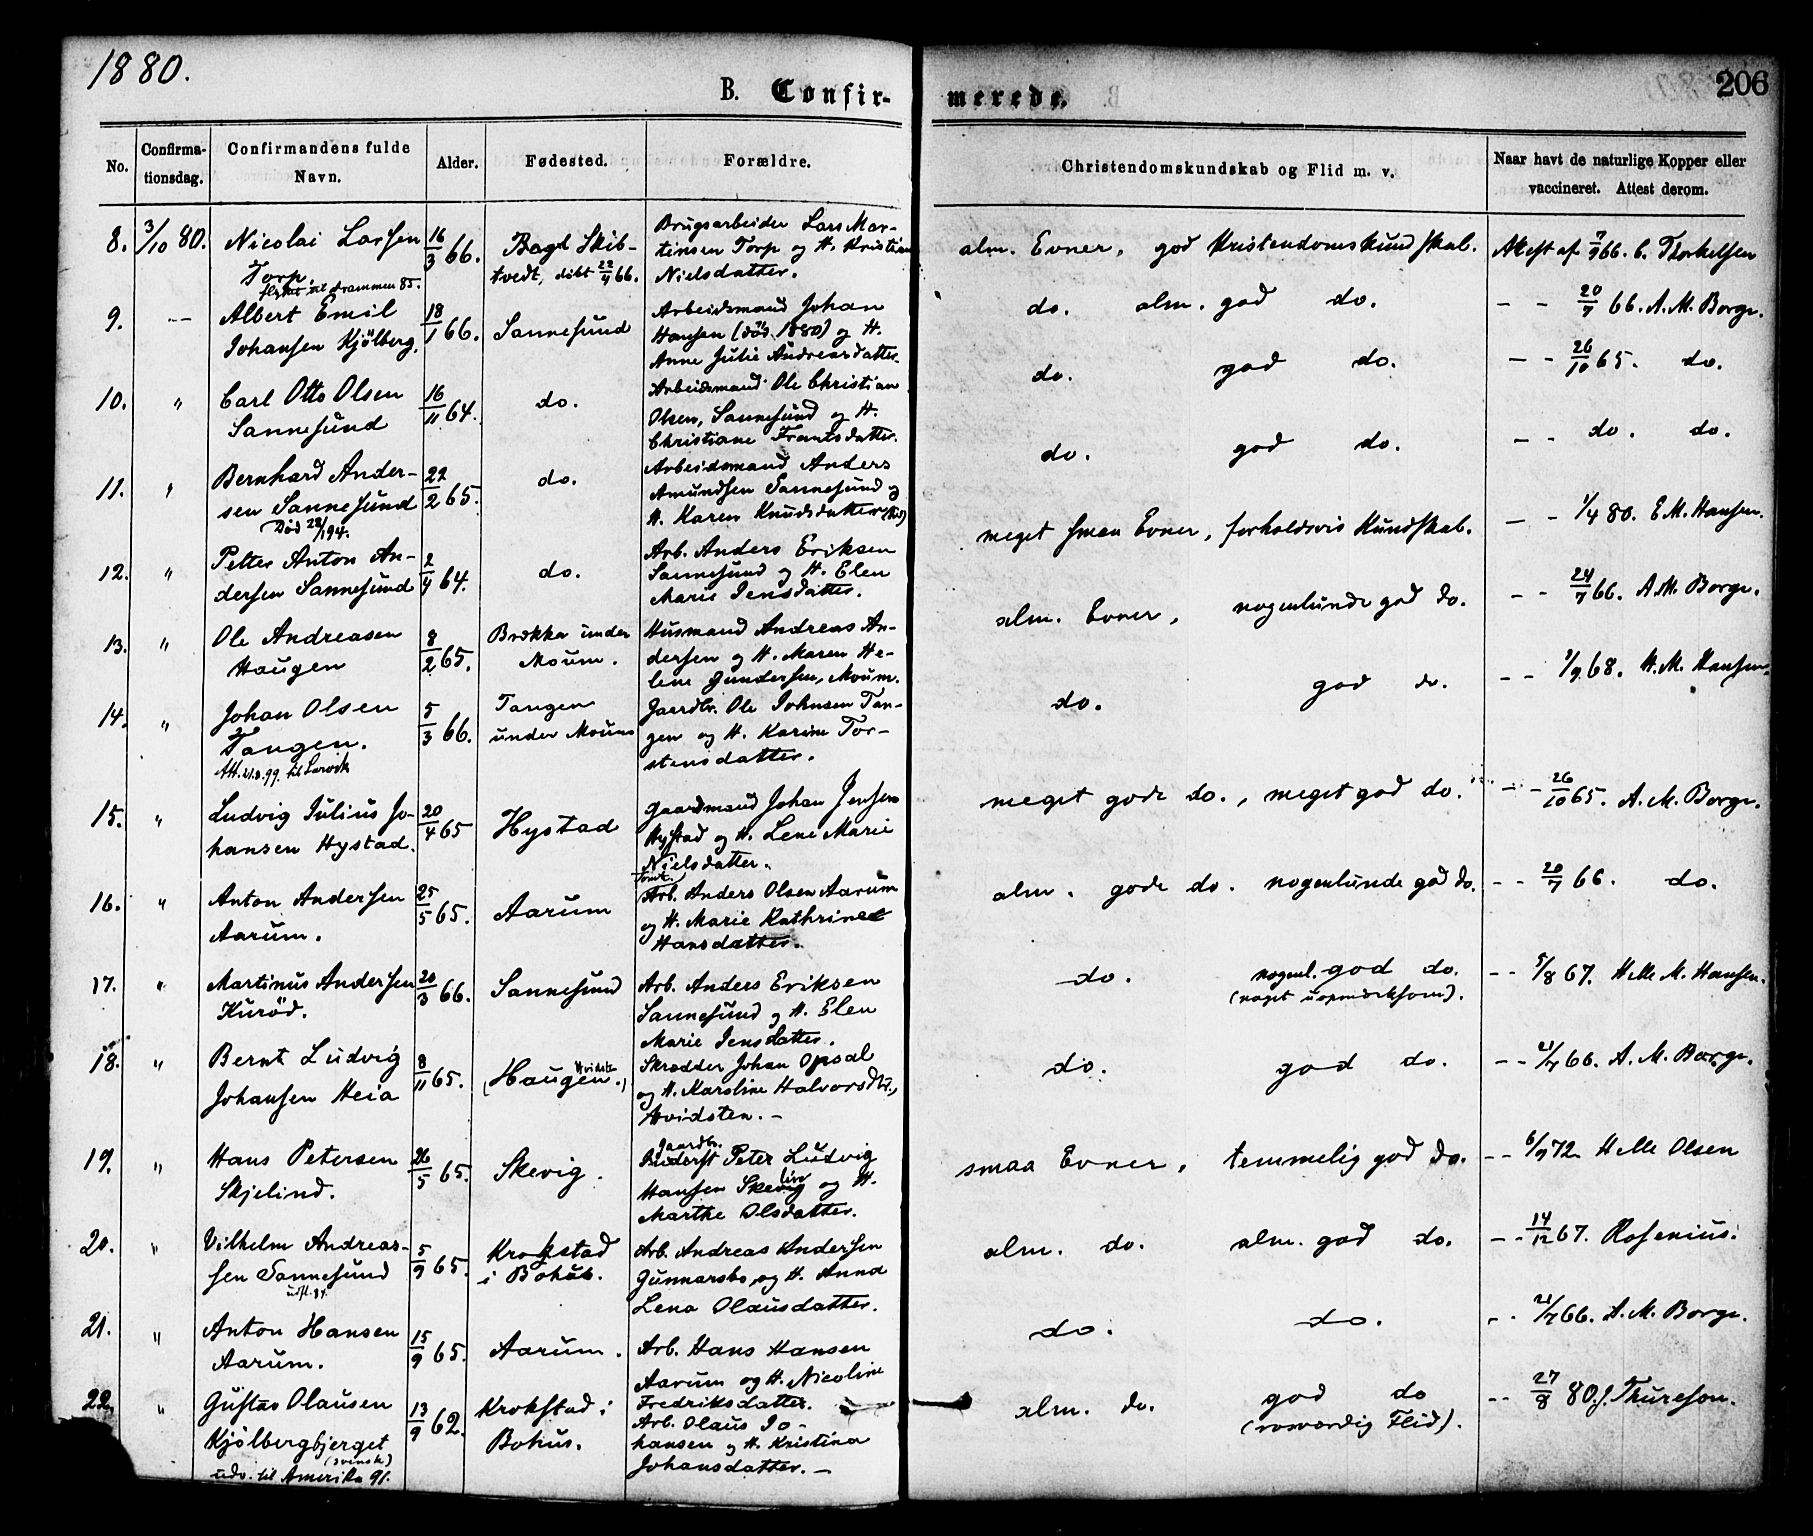 1880.
B. Confir-
merede.
206
No.
Confirma-
tionsdag.
Confirmandens fulde
Navn.
Alder.
Fødested.
Forældre.
Christendomskundskab og Flid m. v.
Naar havt de naturlige Kopper eller
vaccineret. Attest derom.
8. 3/10 80. Nicolai Larsen
Torp.
flyttet til Drammen 85.
16/3 66.
Bagd Skib-
tvedt, døbt 22/4 66.
Brugsarbeider Lars Mar-
tinsen Torp og H. Kristian
Nielsdatter.
alm. Evner, god Kristendomskundskab.
Attest af 7/9 66. C. Thorkelsen
9. -- Albert Emil
Johansen Kjölberg.
18/1 66.
Sannesund
Arbeidsmand Johan
Hansen (död 1880) og H.
Anne Julie Andreasdatter.
do. alm. god do.
- - 20/7 66. A. M. Borge.
10. " Carl Otto Olsen
Sannesund
16/11 64.
do.
Arbeidsmand Ole Christian
Olsen, Sannesund og H.
Christiane Frantsdatter.
do. god do.
- - 26/10 65. do.
11. " Bernhard Ander-
sen Sannesund
Död 28/1 94.
22/2 65.
do.
Arbeidsmand Anders
Amundsen Sannesund og
H. Karen Knudsdatter
do. god do.
- - do. do.
12. " Petter Anton An-
dersen Sannesund
2/4 64.
do.
Arb. Anders Eriksen
Sannesund og H. Elen
Marie Jensdatter.
meget smaa Evner, forholdsvis Kundskab.
- - 1/4 80. E M. Hansen.
13. " Ole Andreasen
Haugen
8/2 65.
Brekke under
Moum.
Husmand Andreas An-
dersen og H. Maren He-
lene Gundersen, Moum.
alm. Evner, nogenlunde god do.
- - 24/7 66. A. M. Borge.
14. " Johan Olsen
Tangen.
Att. 21.8.99. til Larvik
5/3 66.
Tangen
under Moum
Gaardbr. Ole Johnsen Tan-
gen og H. Karine Tor-
stensdatter.
do. god do.
- - 1/9 68. H. M. Hansen.
15. " Ludvig Julius Jo-
hansen Hystad.
20/4 65
Hystad
Gaardmand Johan Jensen
Hystad og H. Lene Marie
Nielsdatter.
meget gode do., meget god do.
- - 26/10 65. A. M. Borge.
16. " Anton Andersen
Aarum.
25/5 65.
Aarum
Tomt.
Arb. Anders Olsen Aarum
og H. Marie Kathrine
Hansdatter.
alm. gode do. nogenlunde god do.
- - 20/7 66. do.
17. " Martinus Andersen
Kuröd.
20/3 66.
Sannesund
Arb. Anders Eriksen
Sannesund og H. Elen
Marie Jensdatter.
do. nogenl. god do.
(noget uopmærksom).
- - 5/8 67. Helle M. Hansen.
18. " Bernt Ludvig
Johansen Heia
8/11 65.
(Haugen Hvidste.)
Skrædder Johan Opsal
og H. Karoline Halvorsdtr.,
Hvidsten. -
do. god do.
- - 21/7 66. A. M. Borge.
19. " Hans Petersen
Skjelind.
26/5 65.
Skevig.
Gaardbr.
Peter Ludvig
Hansen Skevig og H.
Marthe Olsdatter.
smaa Evner, temmelig god do.
- - 6/9 72 Helle Olsen
20. " Vilhelm Andreas-
sen Sannesund
udfl. 84.
5/9 65.
Krokstad
i Bohus.
Arb. Andreas Andersen
Gunnarsbo og H. Anna
Lena Olausdatter.
alm. do. alm. god do.
- - 14/12 67. Rosenius.
21. " Anton Hansen
Aarum.
15/9 65.
Aarum.
Arb. Hans Hansen
Aarum og H. Nicoline
Fredriksdatter.
do. do.
- - 21/7 66. A. M. Borge.
22. " Gustav Olausen
Kjölbergbjerget
(svensk)
udv. til Amerika 91.
13/9 62.
Krokstad i
Bohus.
Arb. Olaus Jo-
hansen og H. Kristina
Johansdatter. -
alm. do. god do
(rosværdig Flid).
- - 27/8 80. J. Thureson.